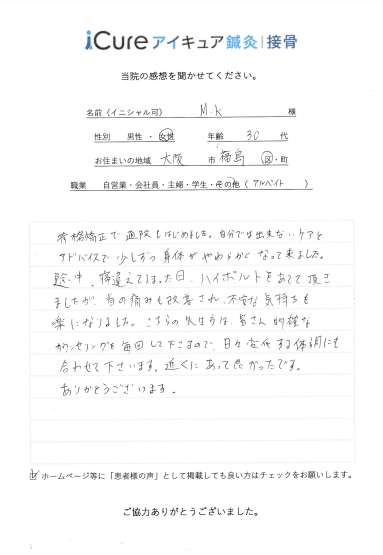 iCure アイキュア鍼灸|接骨
当院の感想を聞かせてください。
名前(イニシャル可) M.K 様
性別 男性・女性 年齢 30 代
お住まいの地域 大阪 市 福島 区・町
職業 自営業・会社員・主婦・学生・その他(アルバイト)
骨格矯正で通院をはじめました。自分では出来ないケアと
アドバイスで少しずつ身体がやわらかくなって来ました。
途中、寝違えてしまった日、ハイボルトをあてて頂き
ましたが、首の痛みも改善され、不安な気持ちも
楽になりました。こちらの先生方は、皆さん的確な
カウンセリングを毎回して下さるので、日々変化する体調にも
合わせて下さいます。近くにあって良かったです。
ありがとうございます。
ホームページ等に「患者様の声」として掲載しても良い方はチェックをお願いします。
ご協力ありがとうございました。